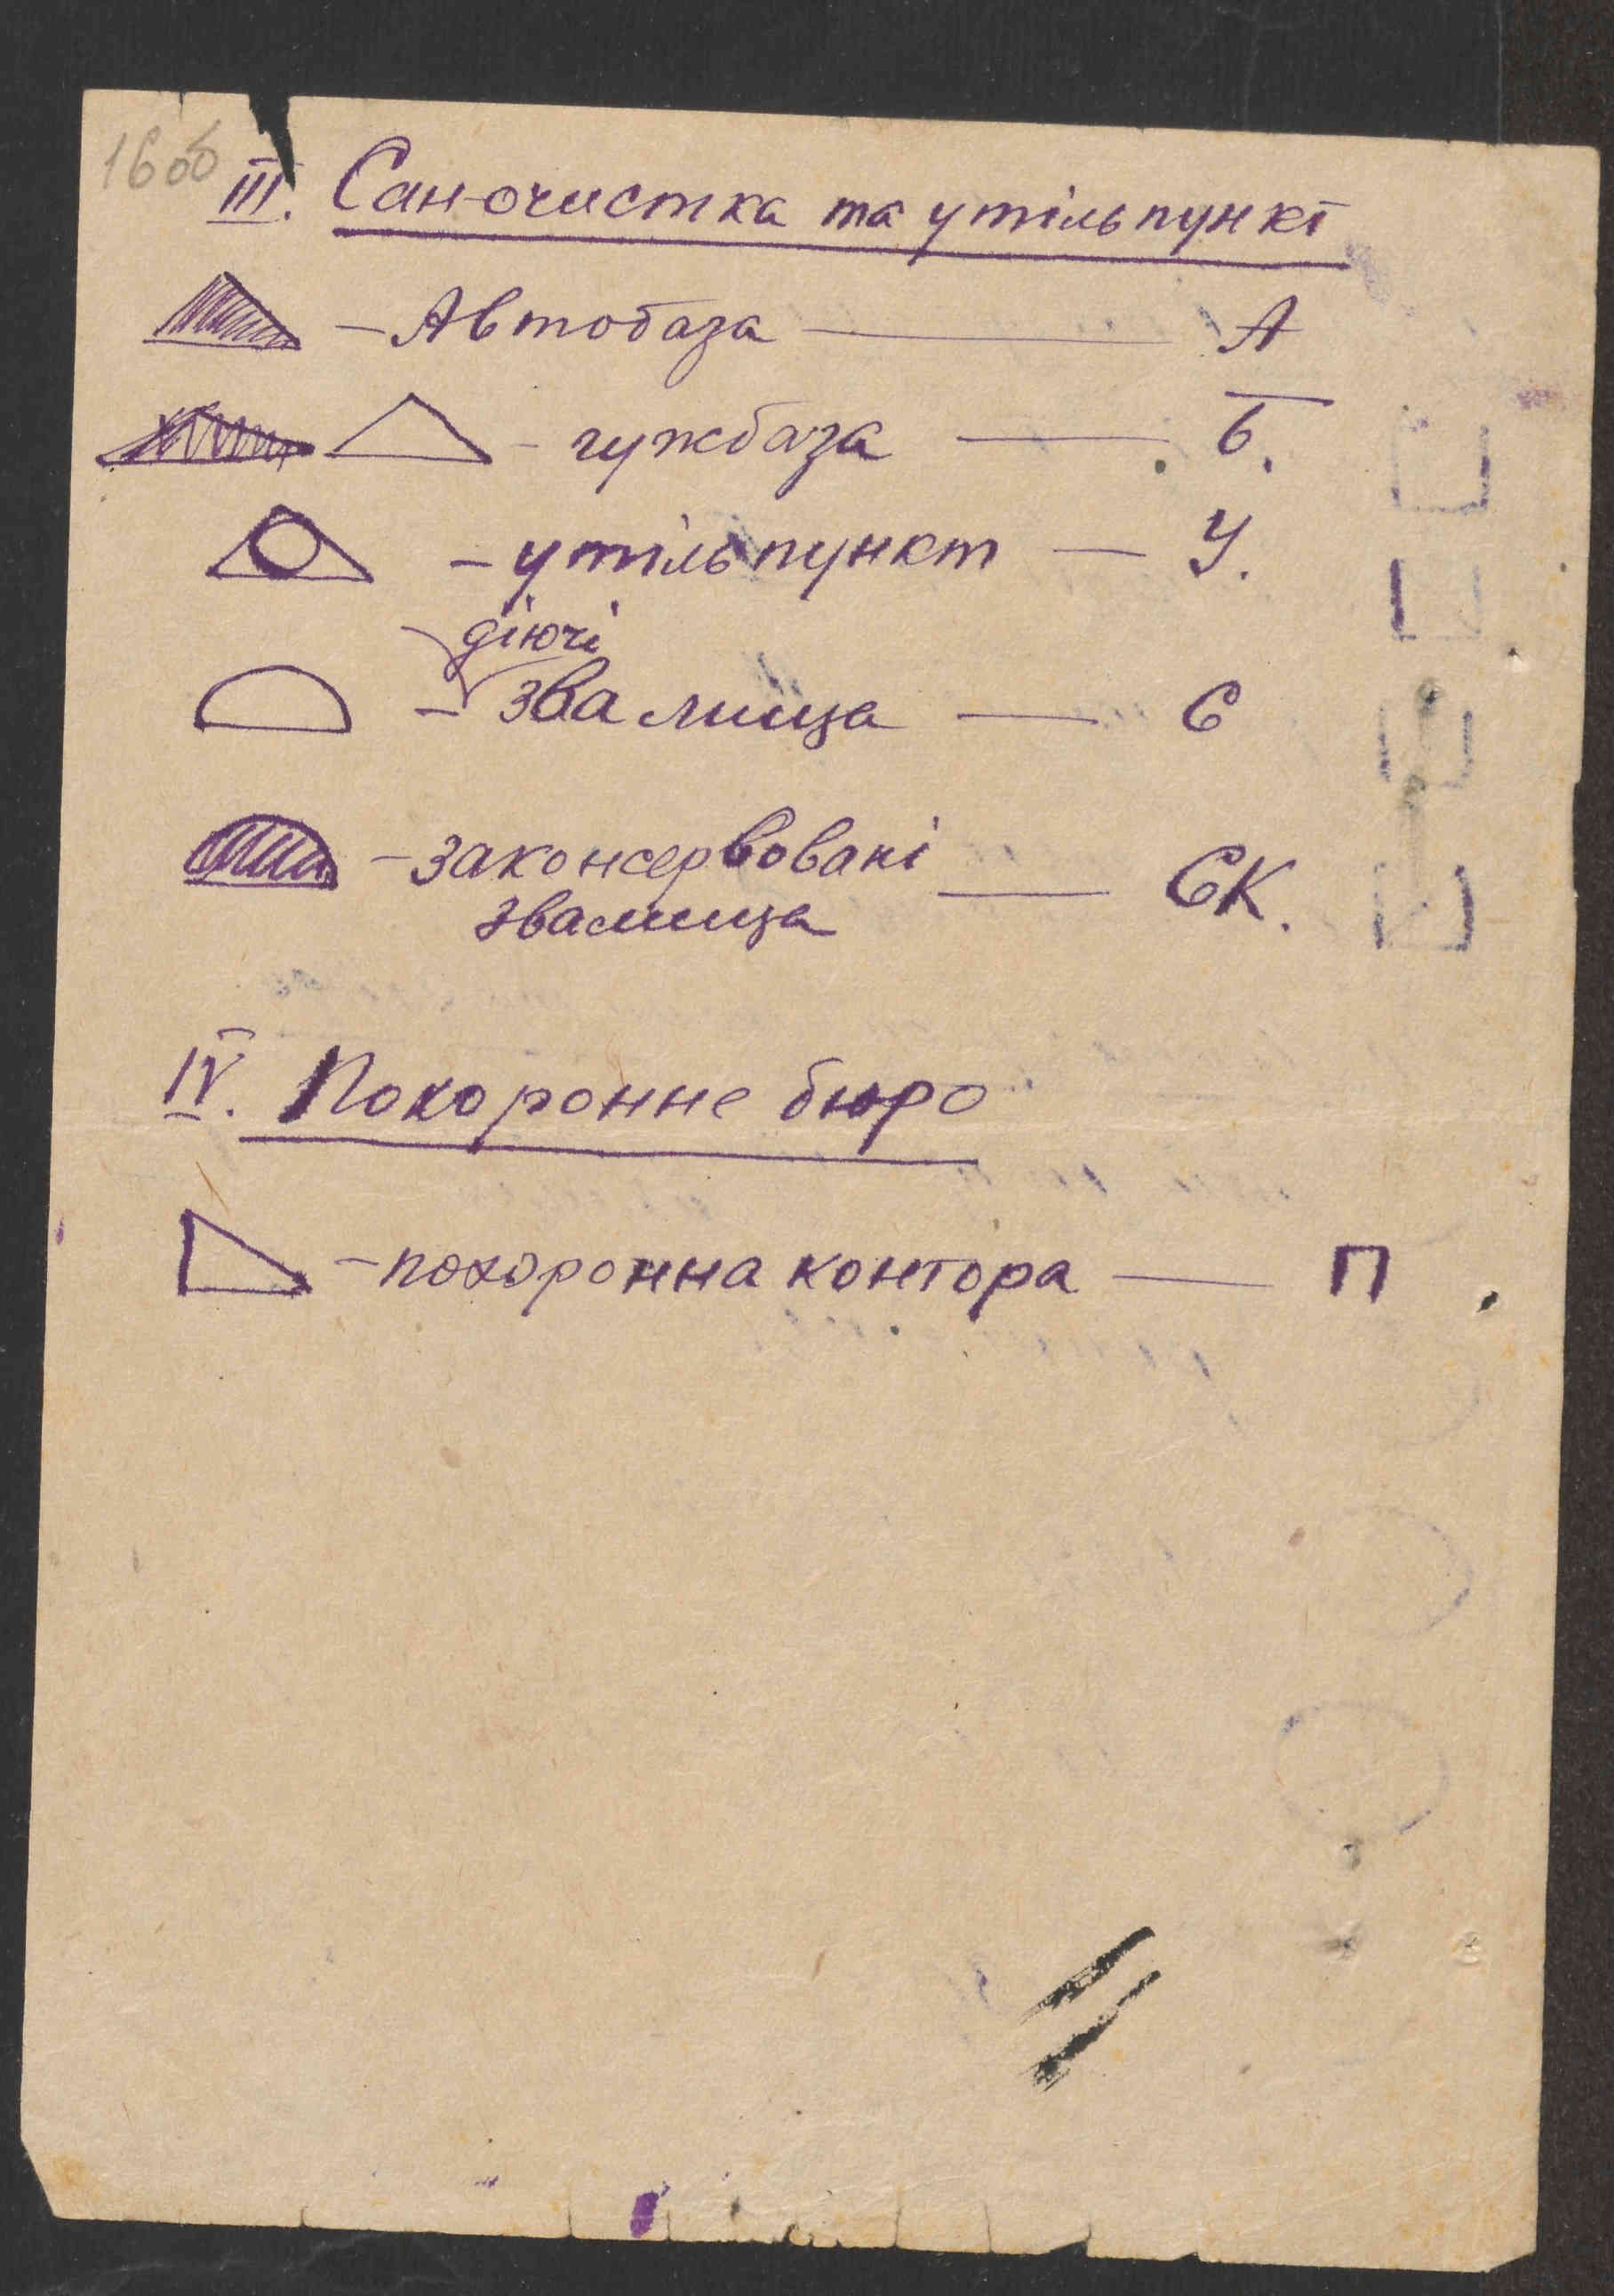 16об
III. Саночистка та утільпункт
– Автобаза — А
– гужбаза — Б.
– утільпункт — У.
діючі
– звалища — С
– законсервовані — СК.
звалища
IV. Похоронне бюро
– похоронна контора — П